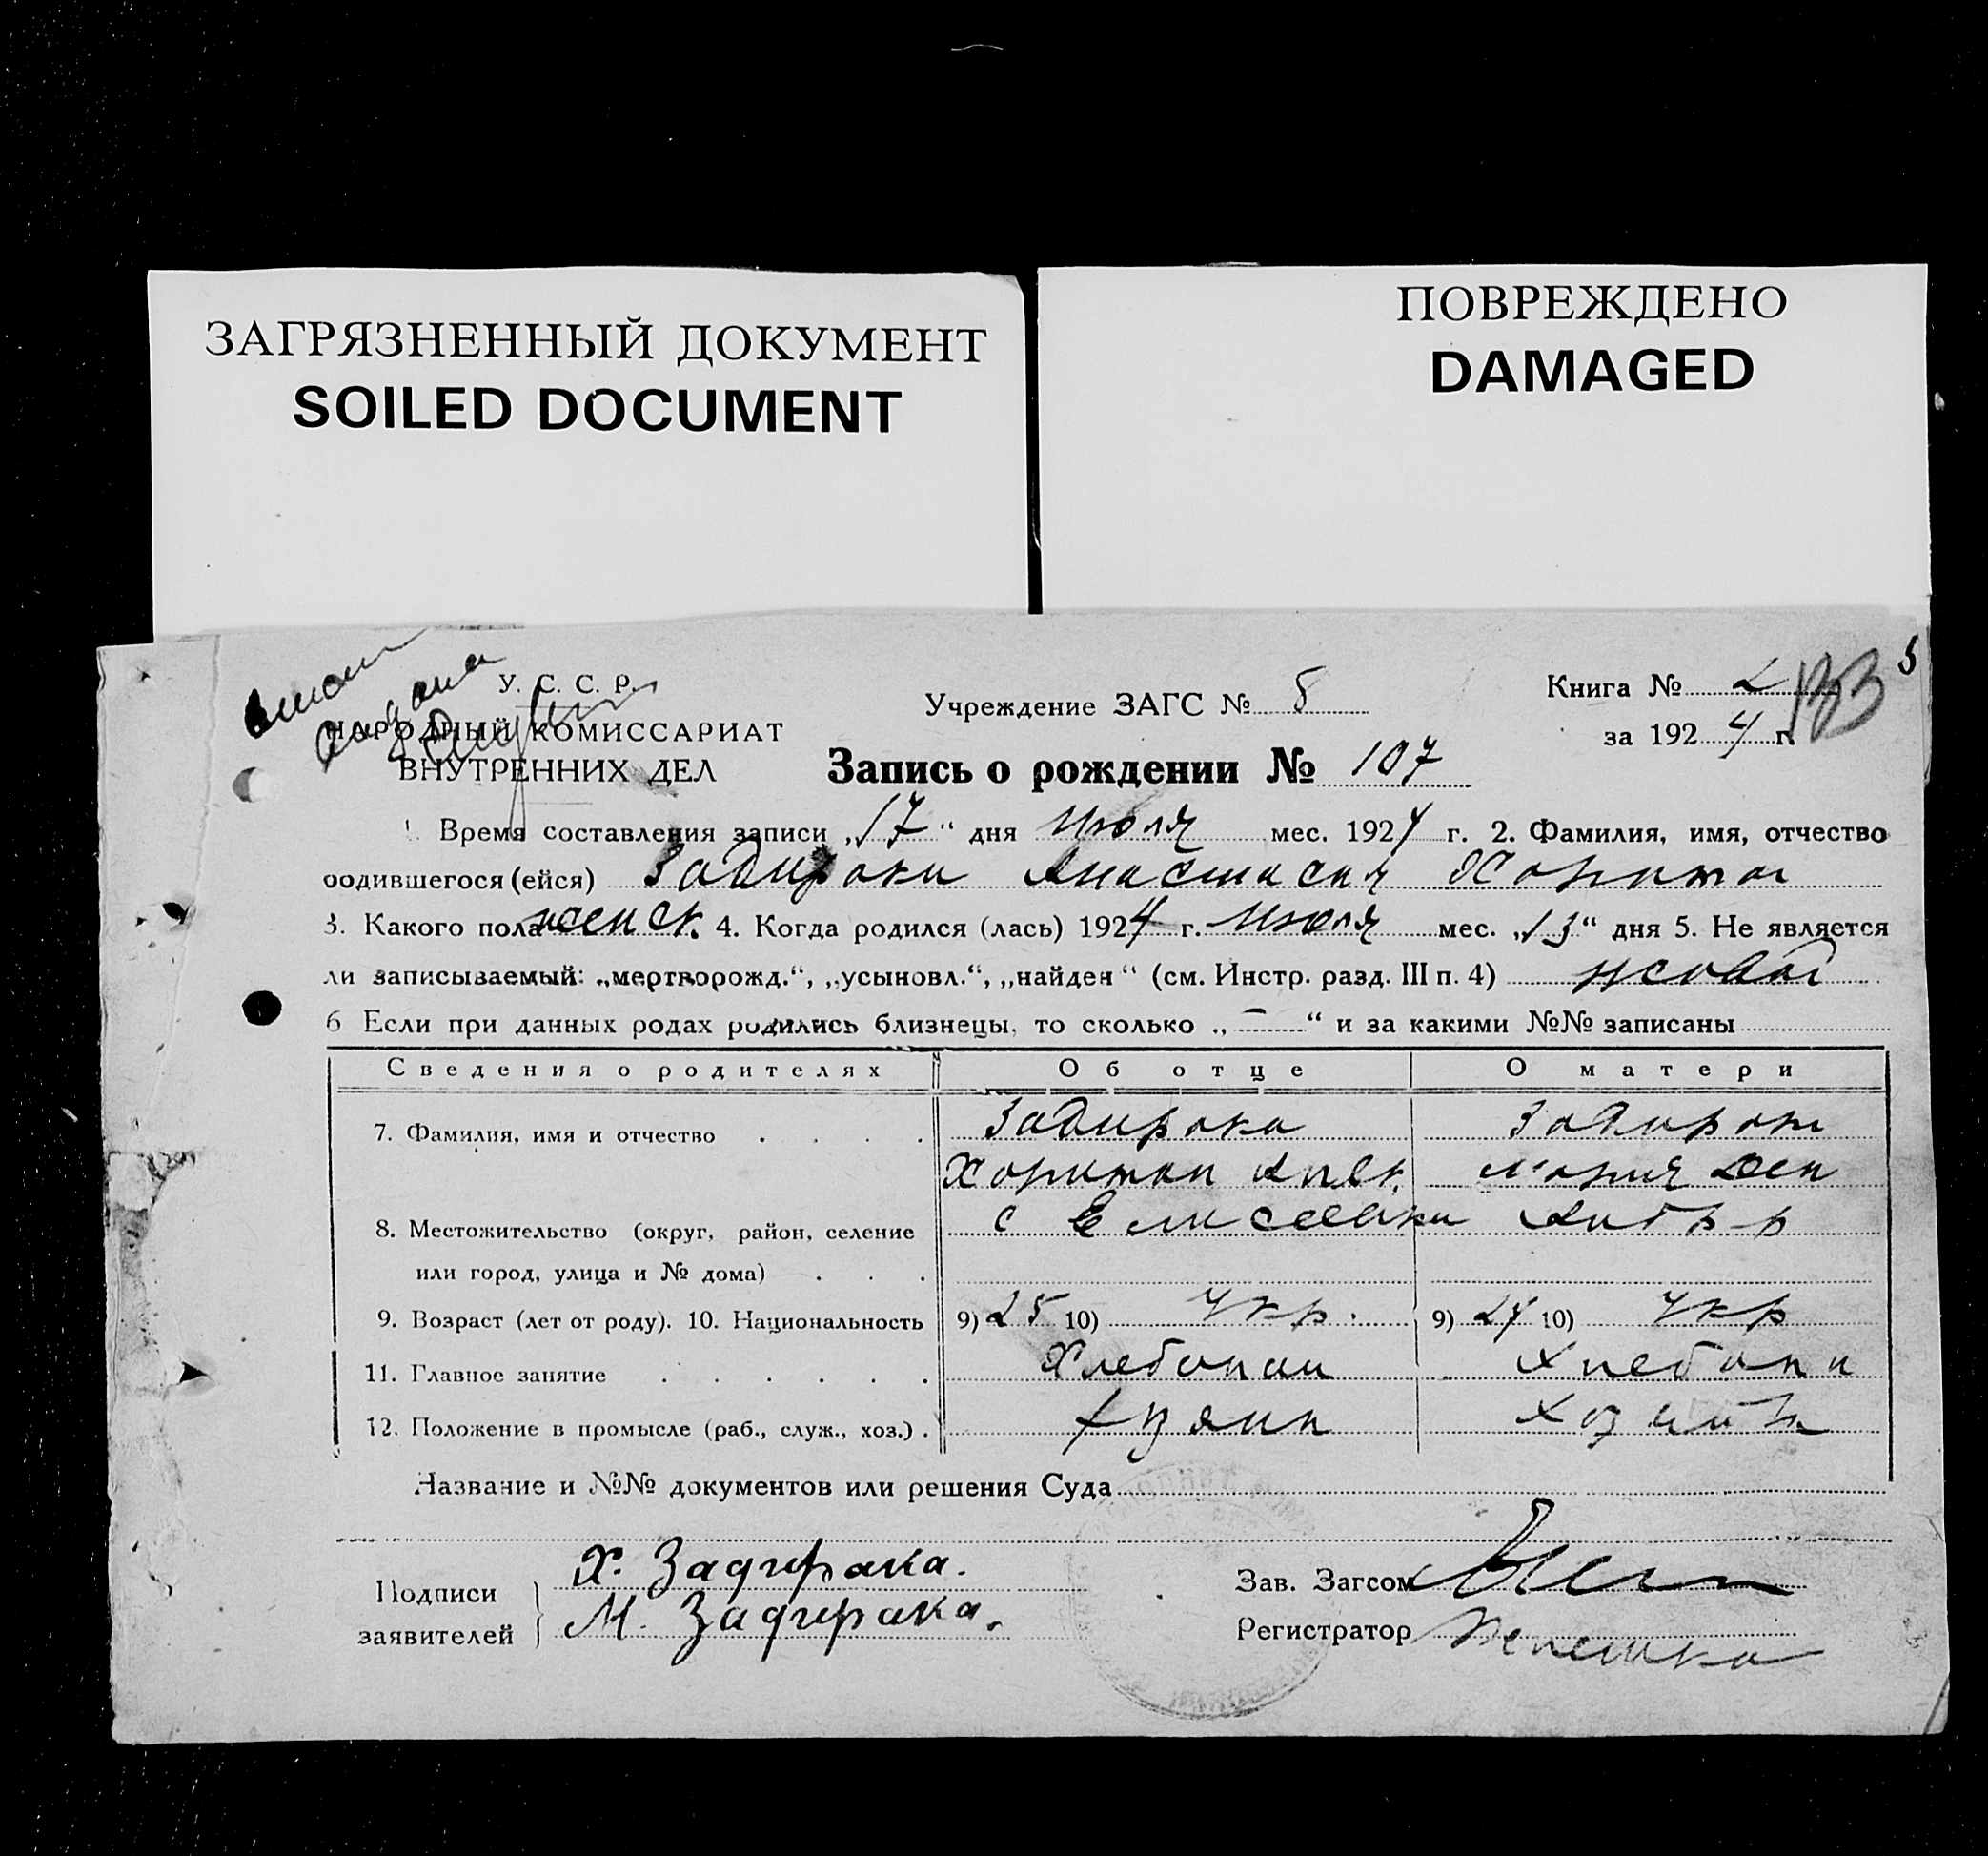 ЗАГРЯЗНЕННЫЙ ДОКУМЕНТ
SOILED DOCUMENT
ПОВРЕЖДЕНО
DAMAGED
У. С. С. Р.
НАРОДНЫЙ КОМИССАРИАТ
ВНУТРЕННИХ ДЕЛ
Учреждение ЗАГС №
Книга № 2
133
5
за 1924 г.
Запись о рождении № 107
1. Время составления записи „17“ дня июля мес. 1924 г. 2. Фамилия, имя, отчество
родившегося (ейся) Задирака Анастасия Харитон
3. Какого пола женск. 4. Когда родился (лась) 1924 г. июля мес. „13“ дня 5. Не является
ли записываемый: „мертворожд.“, „усыновл.“, „найден“ (см. Инстр. разд. III п. 4) живой
6 Если при данных родах родились близнецы, то сколько „—“ и за какими №№ записаны
Сведения о родителях Об отце О матери
7. Фамилия, имя и отчество Задирака Задирака
Харитон Мария
8. Местожительство (округ, район, селение с Елисеевки
или город, улица и № дома)
9. Возраст (лет от роду). 10. Национальность 9) 25 10) Укр. 9) 24 10) Укр
11. Главное занятие Хлебопаш Хлебопа
12. Положение в промысле (раб., служ., хоз.)
Название и №№ документов или решения Суда
Подписи заявителей
Х. Задирака.
М. Задирака.
Зав. Загсом
Регистратор